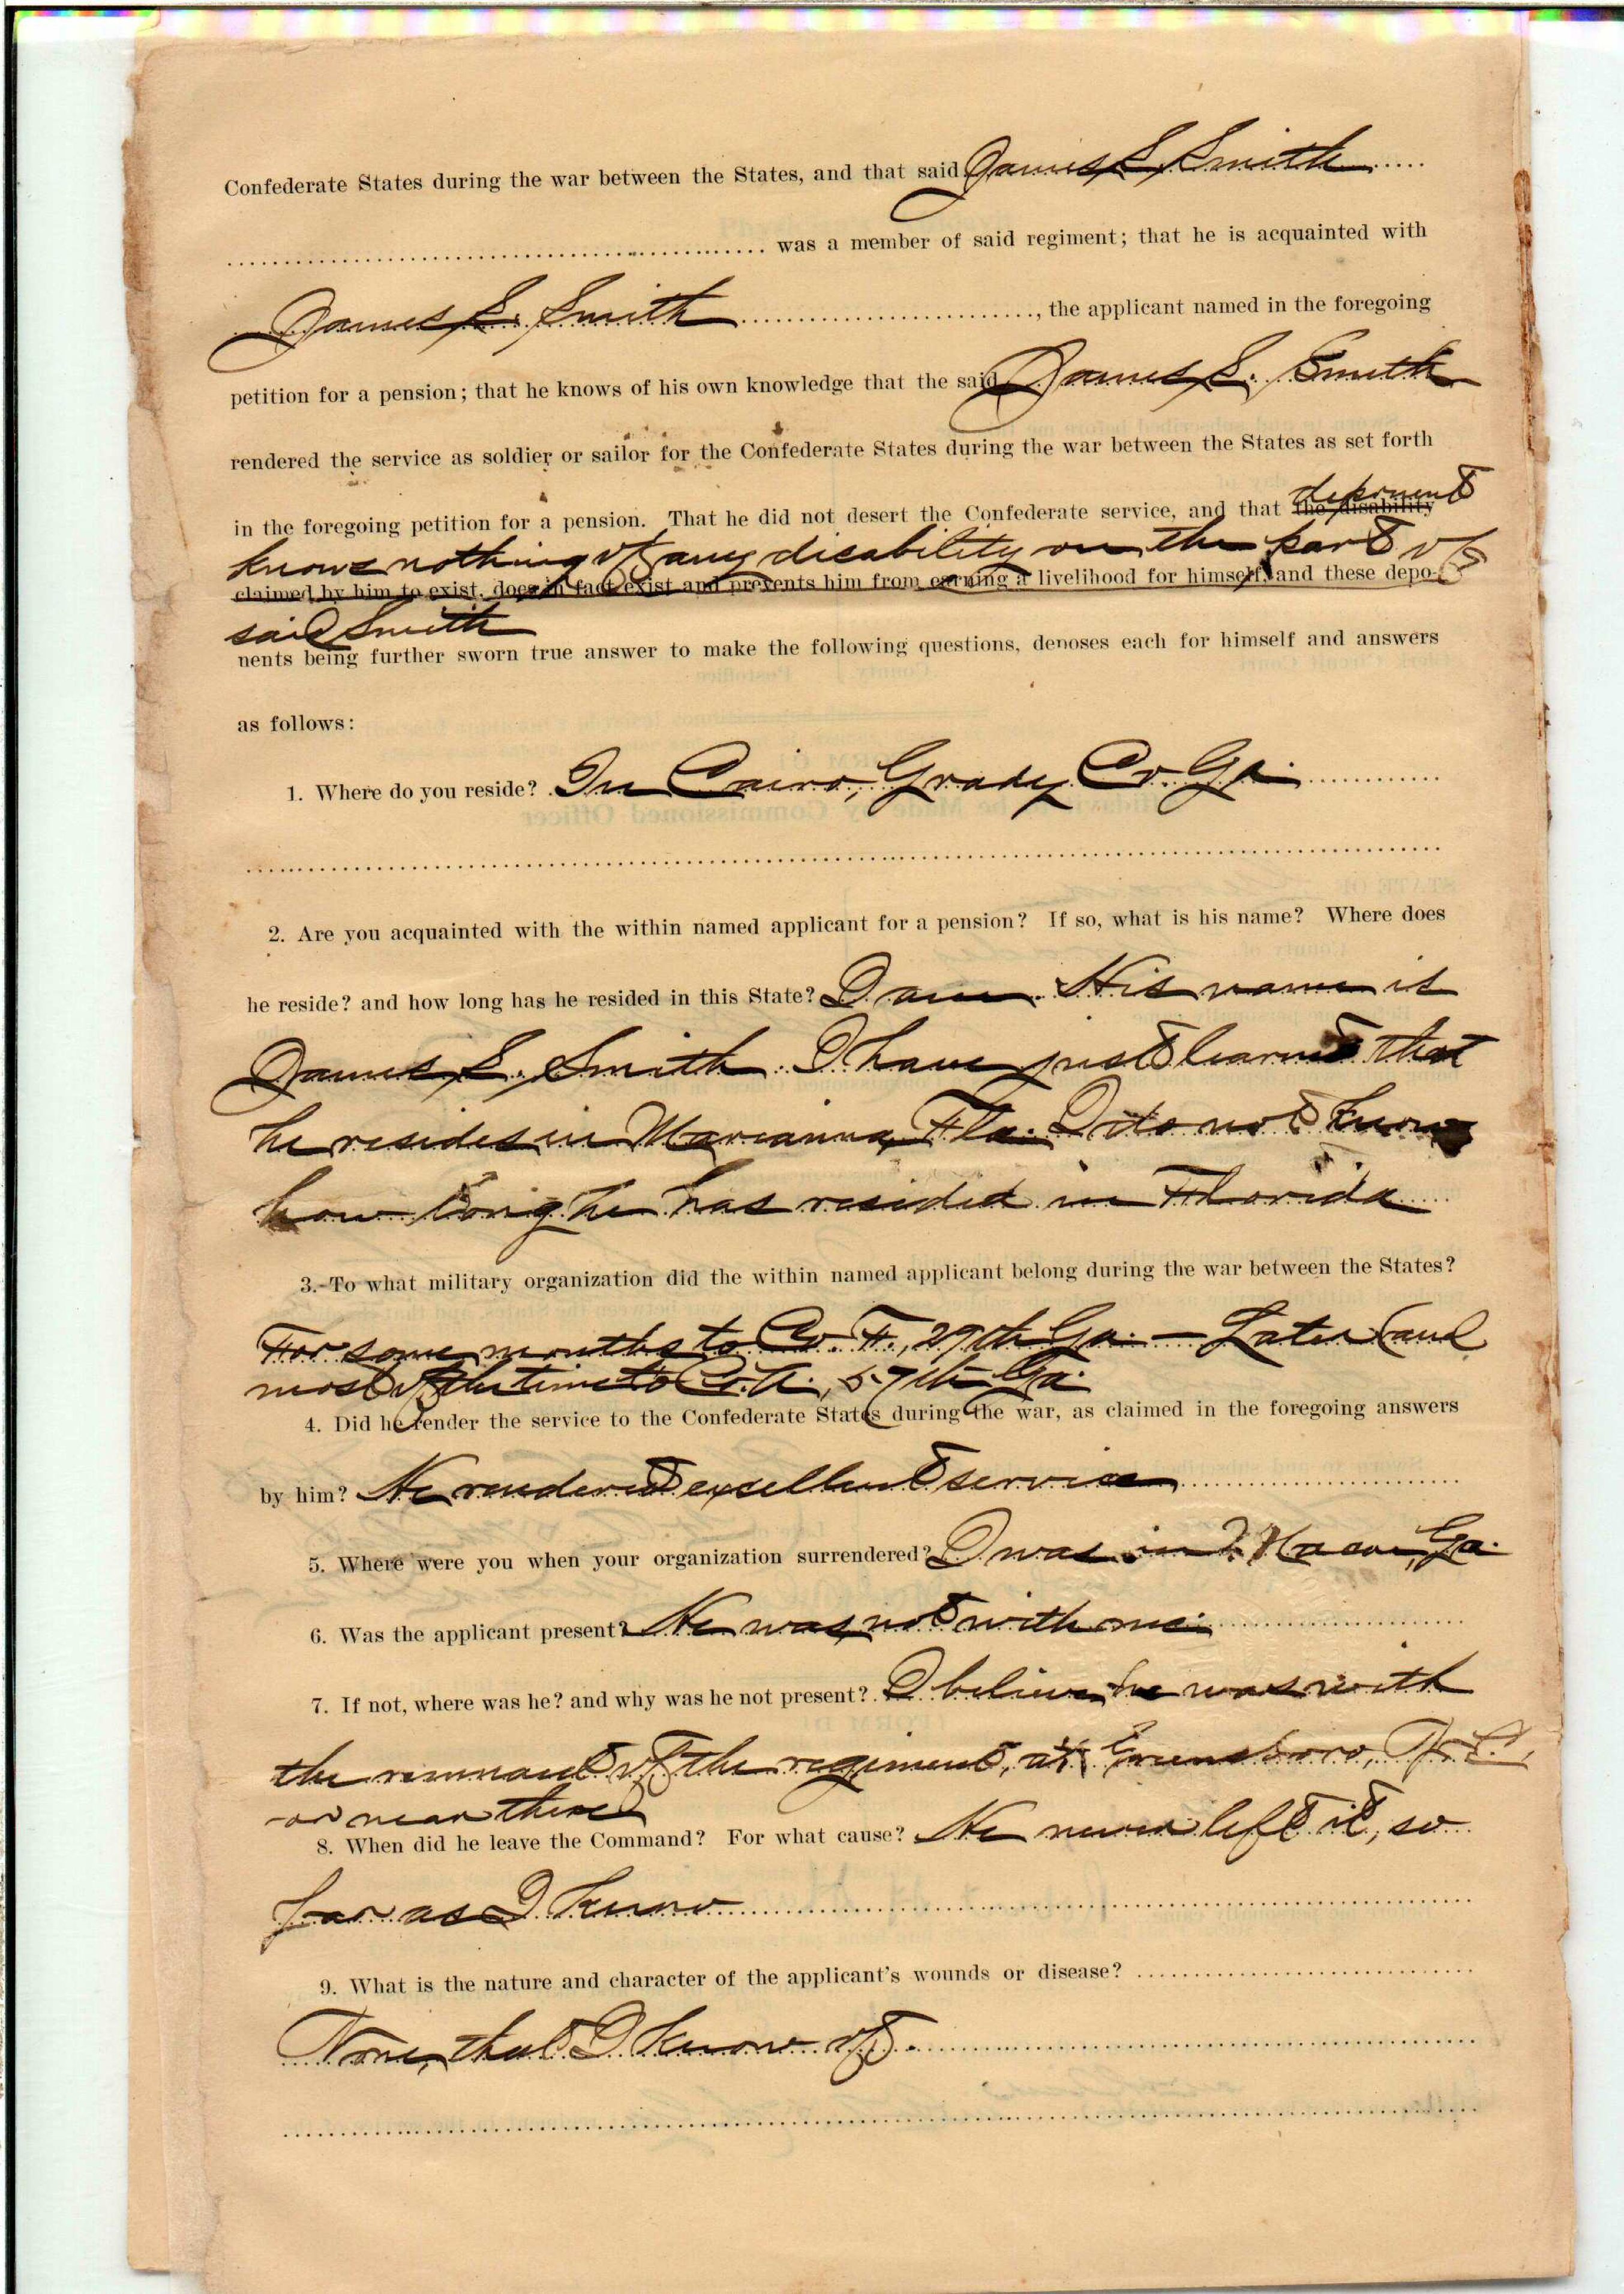 Confederate States during the war between the States, and that said James S. Smith
was a member of said regiment; that he is acquainted with
James S. Smith, the applicant named in the foregoing
petition for a pension; that he knows of his own knowledge that the said James S. Smith
rendered the service as soldier or sailor for the Confederate States during the war between the States as set forth
deponent
in the foregoing petition for a pension. That he did not desert the Confederate service, and that the disability
knows nothing of any disability on the part of
claimed by him to exist, does in fact exist and prevents him from earning a livelihood for himself, and these depo-
said Smith
nents being further sworn true answer to make the following questions, deposes each for himself and answers
as follows:
1. Where do you reside? In Cairo, Grady Co. Ga.
2. Are you acquainted with the within named applicant for a pension? If so, what is his name? Where does
he reside? and how long has he resided in this State? I am. His name is
James S. Smith. I have just learned that
he resides in Marianna, Fla. I do not know
how long he has resided in Florida
3. To what military organization did the within named applicant belong during the war between the States?
For some months to Co. F., 29th Ga. — Later (and
most of the time to Co. A., 57th Ga.
4. Did he render the service to the Confederate States during the war, as claimed in the foregoing answers
by him? He rendered excellent service
5. Where were you when your organization surrendered? I was in Macon, Ga.
6. Was the applicant present? He was not with me.
7. If not, where was he? and why was he not present? I believe he was with
the remnant of the regiment, at Greensboro, N.C.,
or near there
8. When did he leave the Command? For what cause? He never left it, so
far as I know
9. What is the nature and character of the applicant's wounds or disease?
None, that I know of.